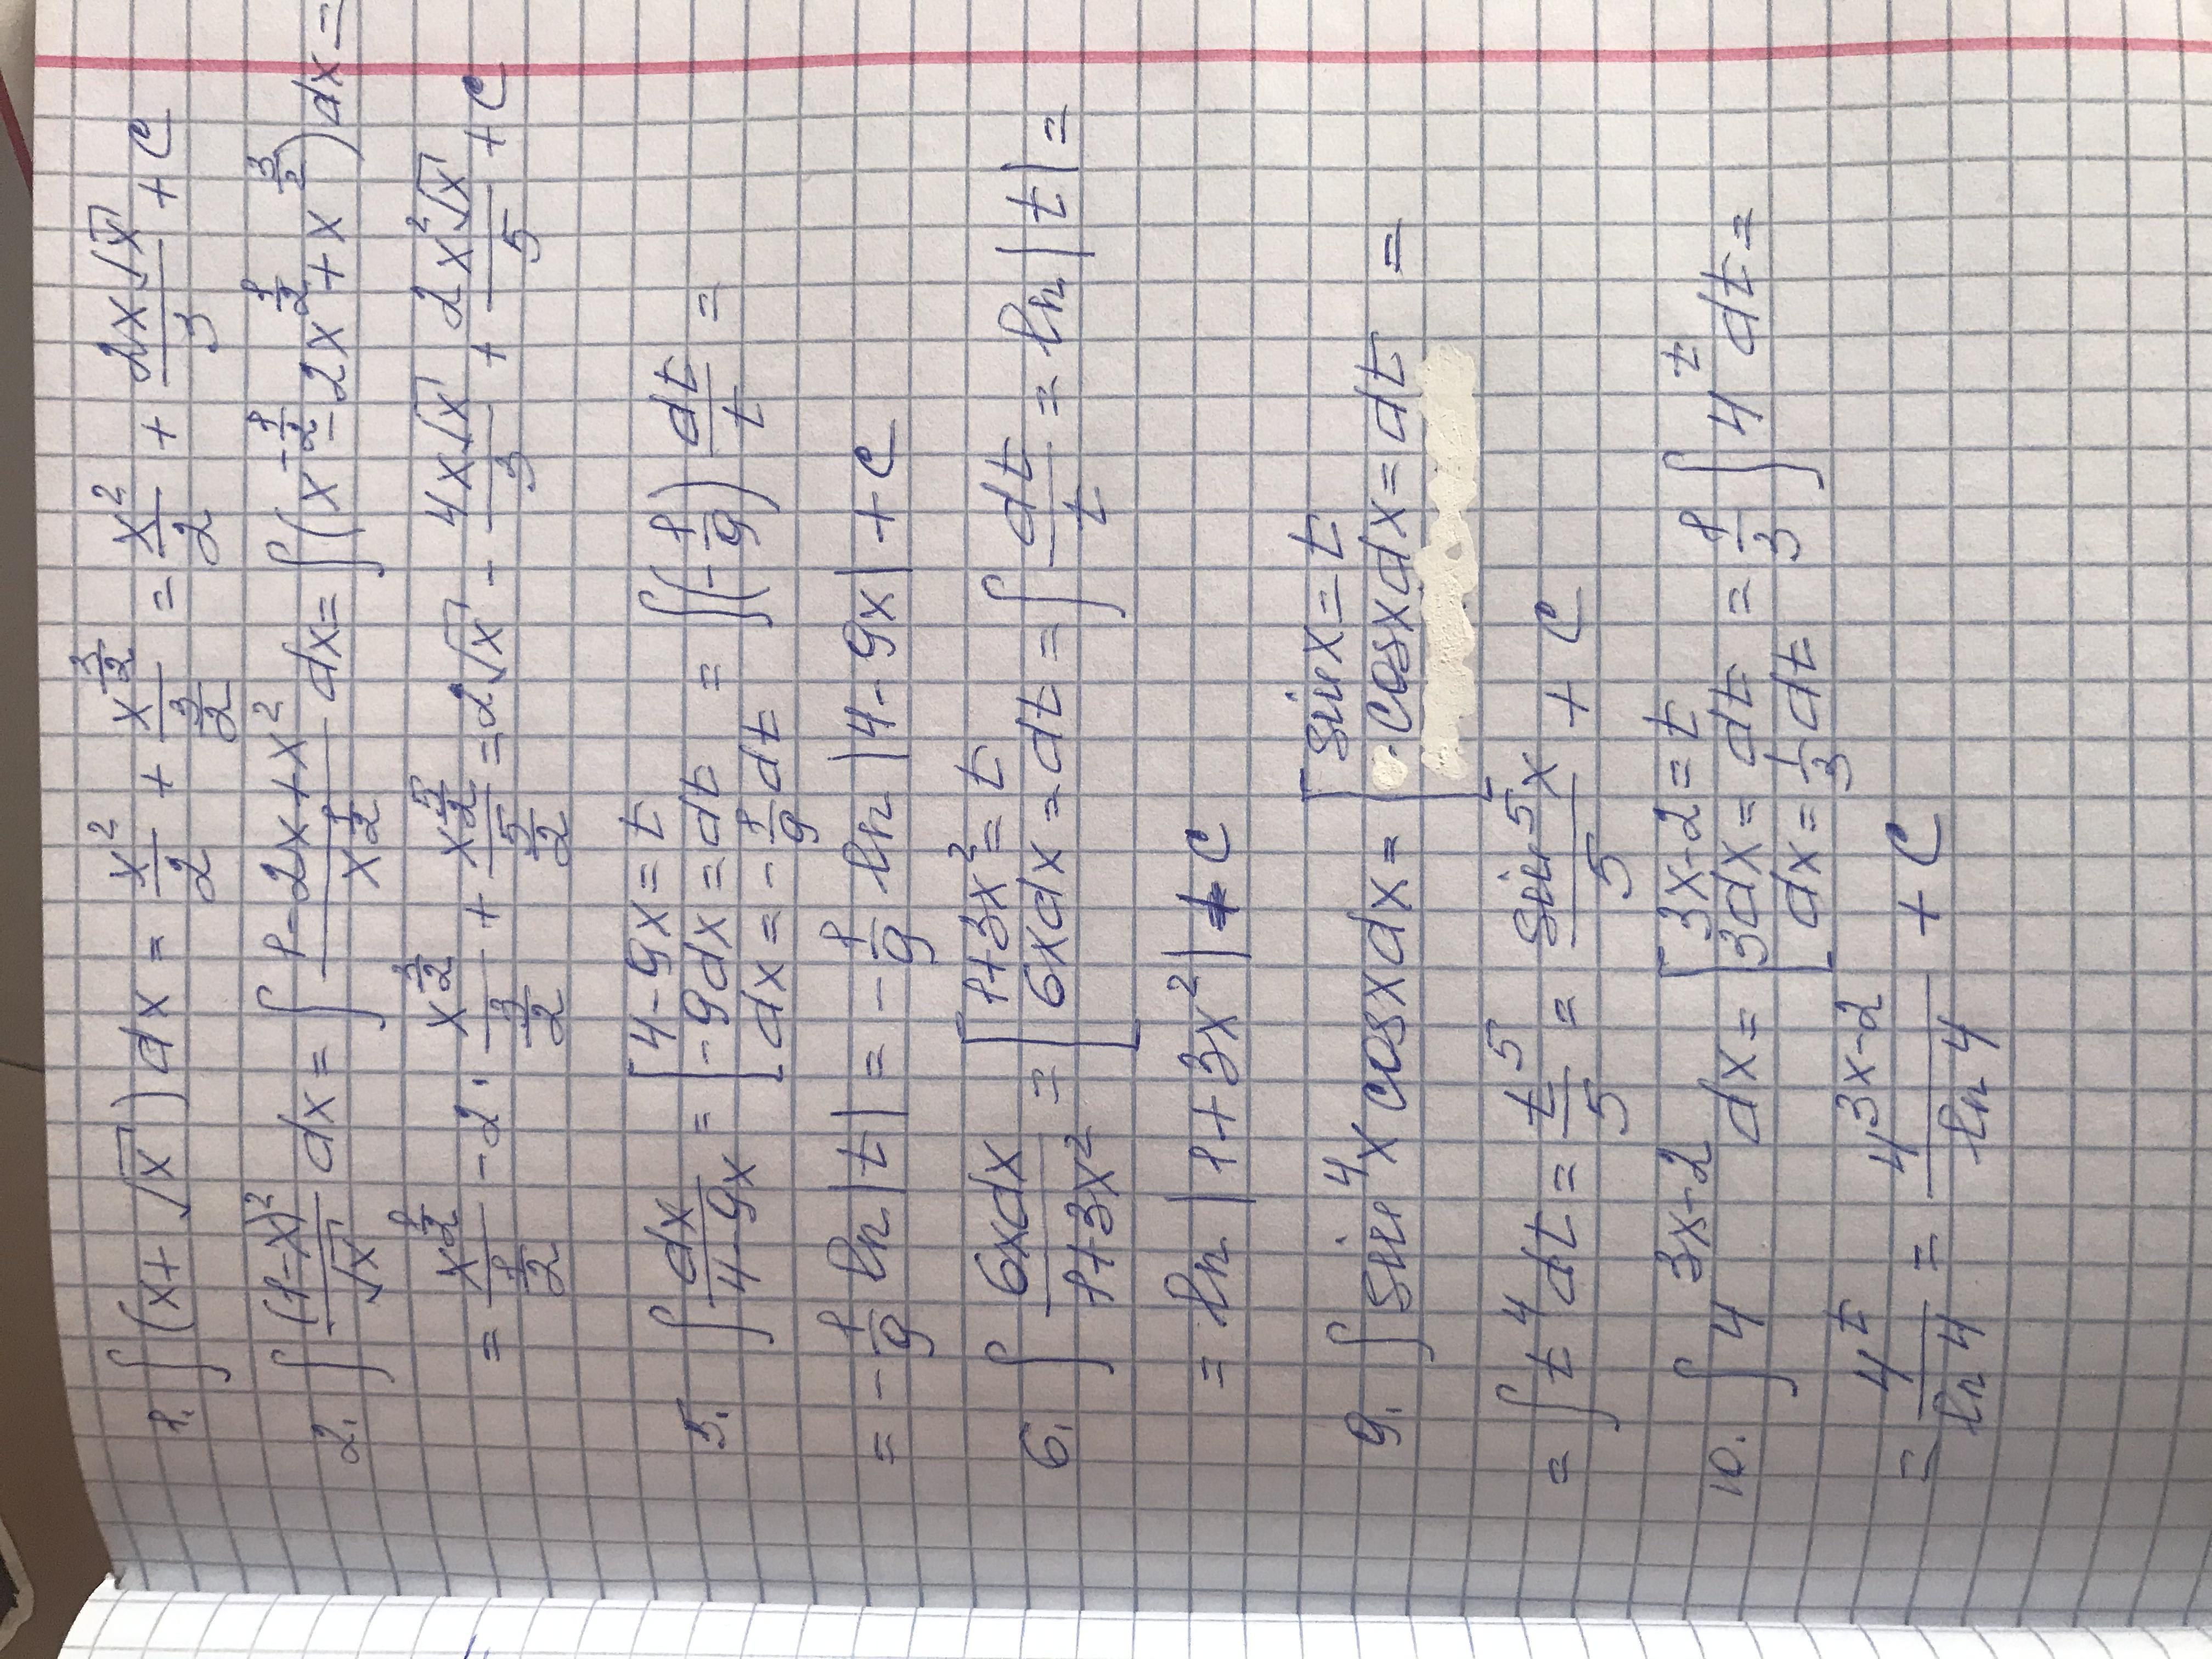 1. ∫(x+√x)dx = x²/2 + x^(3/2)/(3/2) = x²/2 + 2x√x/3 + C
2. ∫(1-x)²/√x dx = ∫(1-2x+x²)/x^(1/2) dx = ∫(x^(-1/2) - 2x^(1/2) + x^(3/2))dx =
= x^(1/2)/(1/2) - 2 · x^(3/2)/(3/2) + x^(5/2)/(5/2) = 2√x - 4x√x/3 + 2x²√x/5 + C
5. ∫dx/(4-9x) = [4-9x=t
-9dx=dt
dx=-1/9 dt = ∫(-1/9)dt/t =
= -1/9 ln|t| = -1/9 ln|4-9x| + C
6. ∫6xdx/(1+3x²) = [1+3x²=t
6xdx=dt = ∫dt/t = ln|t| =
= ln|1+3x²| + C
9. ∫sin⁴x cosxdx = [sinx=t
cosxdx=dt =
= ∫t⁴dt = t⁵/5 = sin⁵x/5 + C
10. ∫4^(3x-2) dx = [3x-2=t
3dx=dt
dx=1/3 dt = 1/3 ∫4^t dt =
= 4^t/ln4 = 4^(3x-2)/ln4 + C